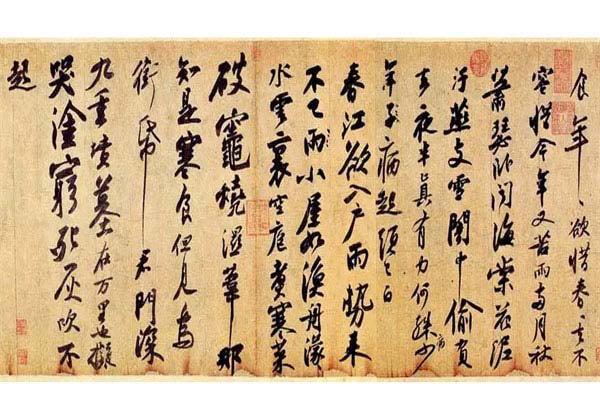 食年、欲惜春、去不
容惜今年又苦雨兩月秋
蕭瑟卧聞海棠花泥
汙燕支雪闇中偷負
去夜半真有力何殊病少
年子病起頭已白
春江欲入戶雨勢來
不已雨小屋如漁舟濛、
水雲裏空庖煮寒菜
破竈燒濕葦那
知是寒食但見烏
銜帋 君門深
九重墳墓在万里也擬
哭塗窮死灰吹不
起